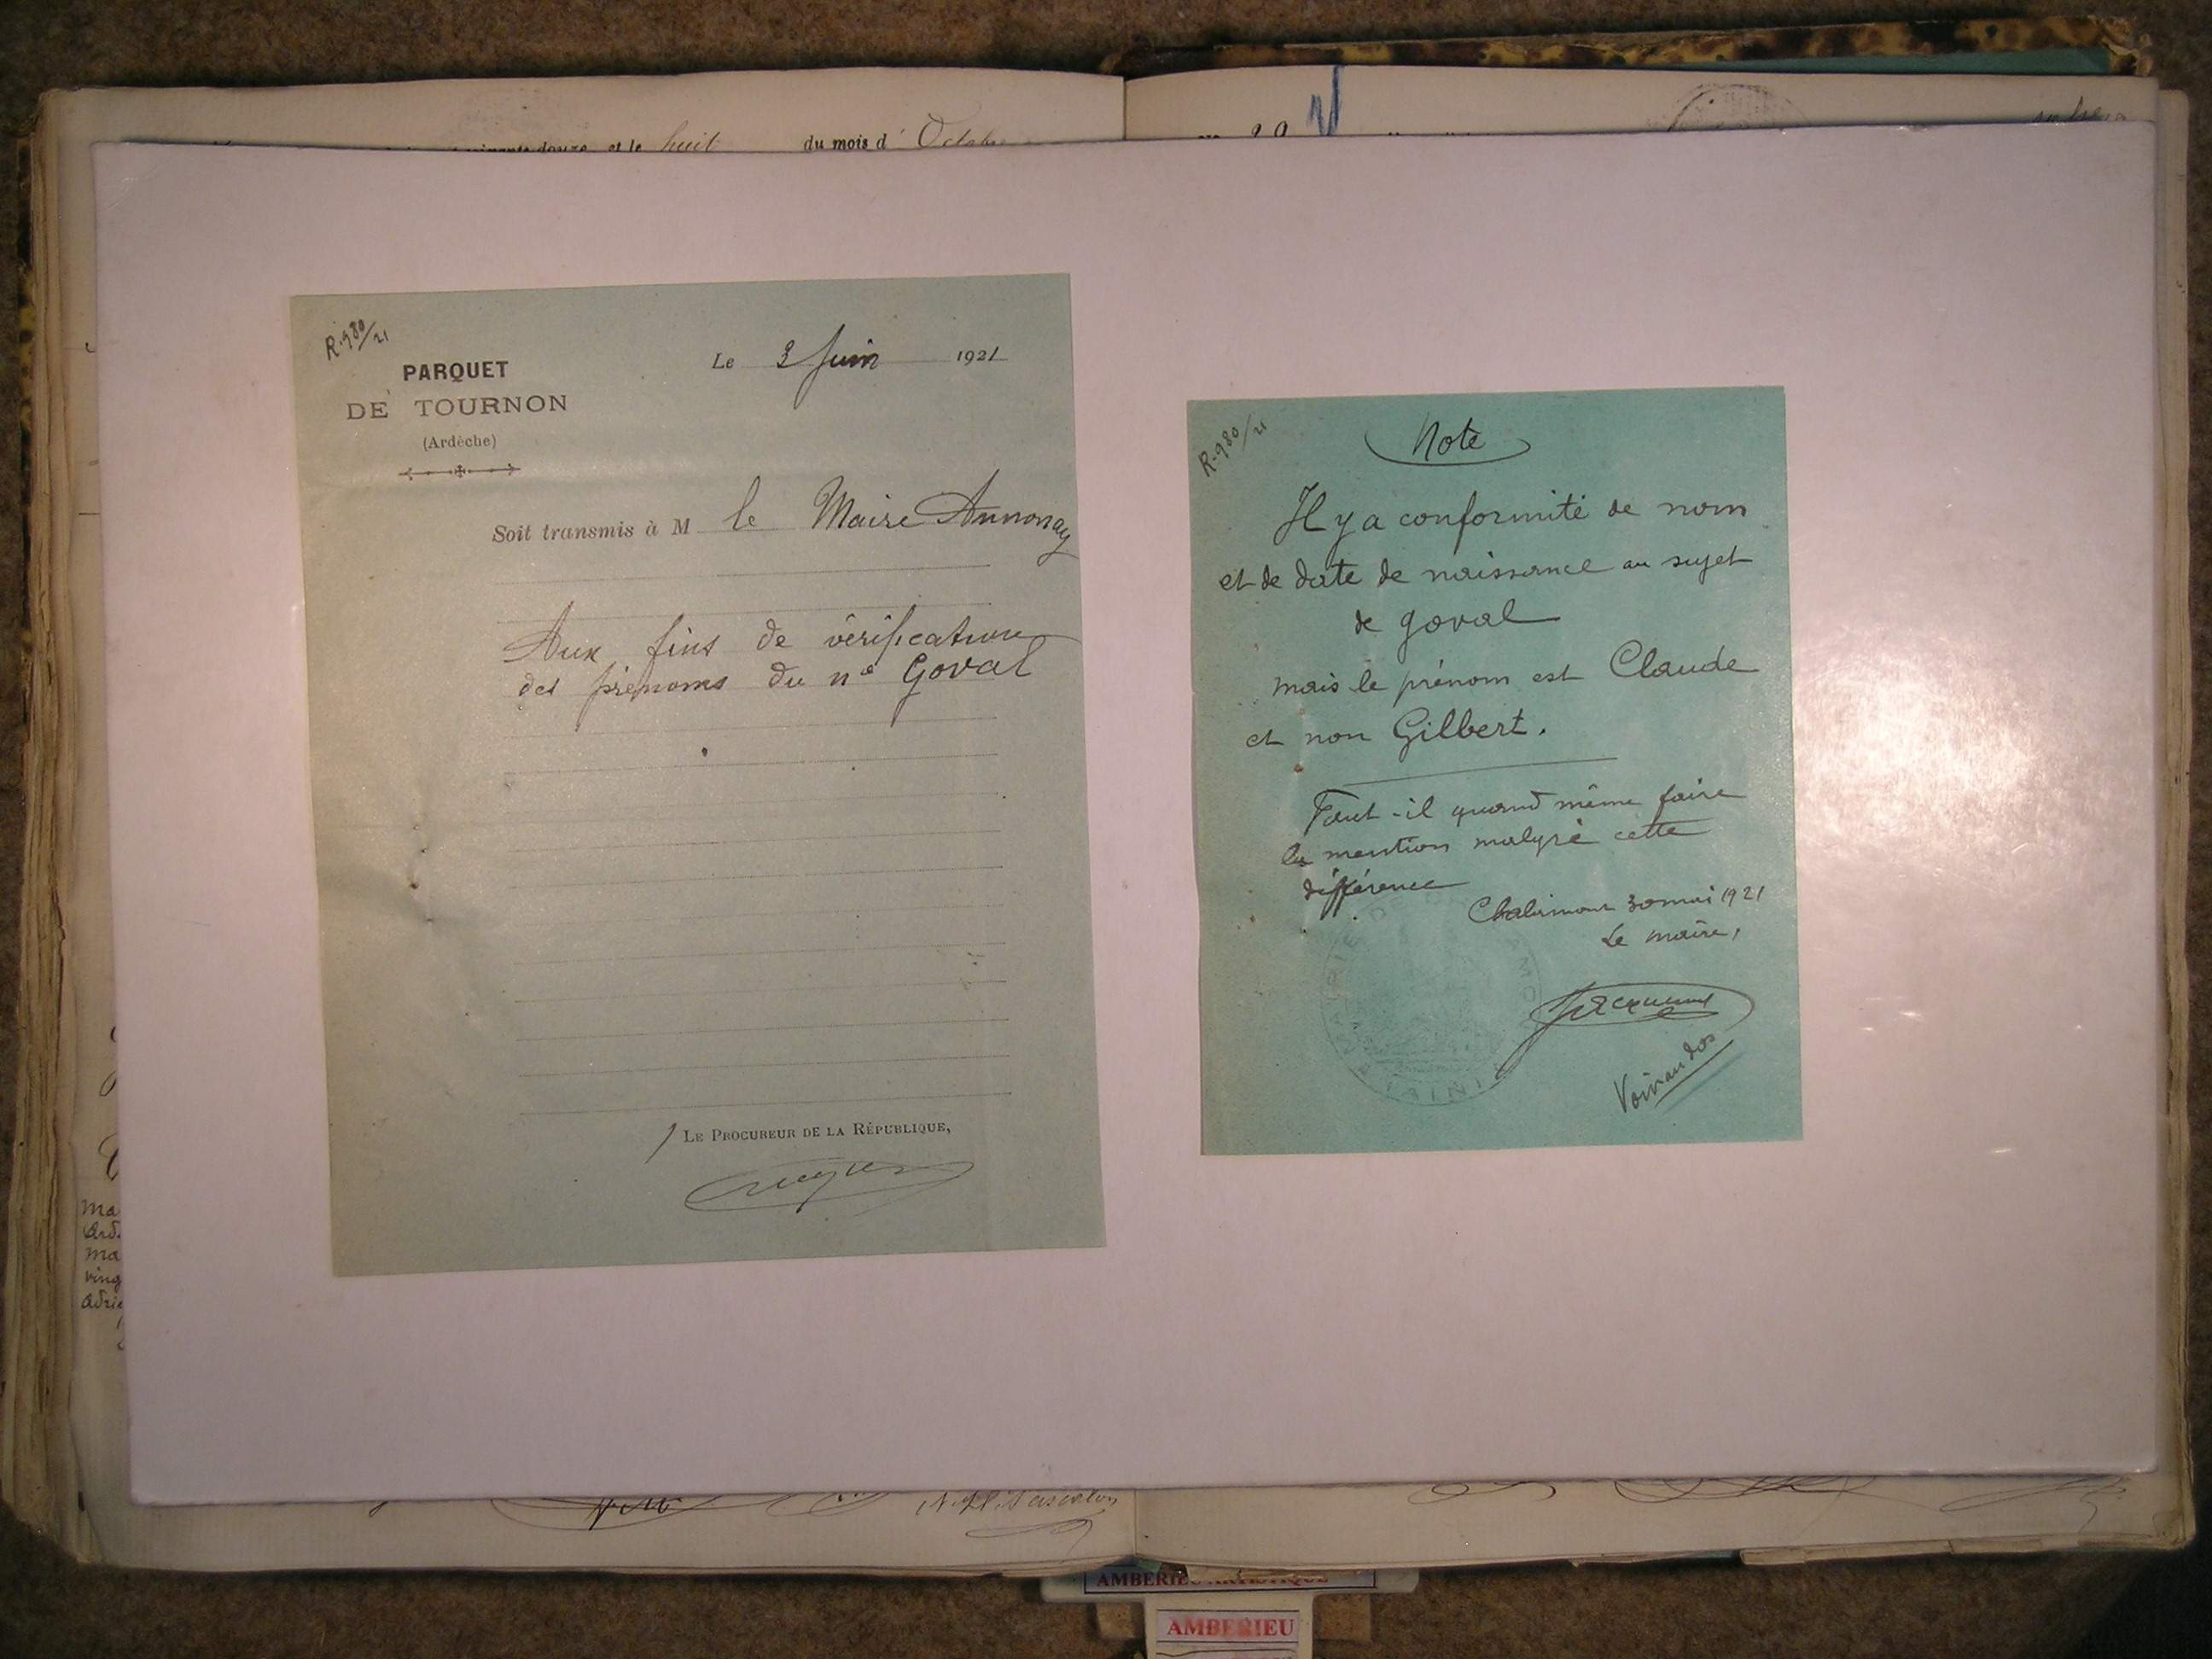 douze et le huit du mois d' Octobre
R.980/21
PARQUET
DE TOURNON
(Ardèche)
Le 3 Juin 1921
Soit transmis à M le Maire Annonay
Aux fins de vérification
des prénoms du né Goval
LE PROCUREUR DE LA RÉPUBLIQUE,
R.980/21
Note
Il y a conformité de nom
et de date de naissance au sujet
de Goval
mais le prénom est Claude
et non Gilbert.
Faut-il quand même faire
la mention malgré cette
différence
Chalamont 30 mai 1921
Le maire,
Voir au dos
ma
ma
ving
AMBERIEU ARTISTIQUE
AMBERIEU